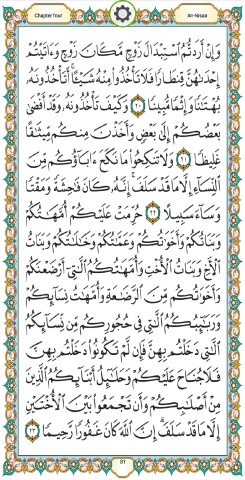 Chapter four
An-Nisaa
وَإِنْ أَرَدتُّمُ ٱسْتِبْدَالَ زَوْجٍ مَّكَانَ زَوْجٍ وَءَاتَيْتُمْ
إِحْدَىٰهُنَّ قِنطَارًا فَلَا تَأْخُذُوا۟ مِنْهُ شَيْـًٔا ۚ أَتَأْخُذُونَهُۥ
بُهْتَٰنًا وَإِثْمًا مُّبِينًا ٢٠ وَكَيْفَ تَأْخُذُونَهُۥ وَقَدْ أَفْضَىٰ
بَعْضُكُمْ إِلَىٰ بَعْضٍ وَأَخَذْنَ مِنكُم مِّيثَٰقًا
غَلِيظًا ٢١ وَلَا تَنكِحُوا۟ مَا نَكَحَ ءَابَآؤُكُم مِّنَ
ٱلنِّسَآءِ إِلَّا مَا قَدْ سَلَفَ ۚ إِنَّهُۥ كَانَ فَٰحِشَةً وَمَقْتًا
وَسَآءَ سَبِيلًا ٢٢ حُرِّمَتْ عَلَيْكُمْ أُمَّهَٰتُكُمْ
وَبَنَاتُكُمْ وَأَخَوَٰتُكُمْ وَعَمَّٰتُكُمْ وَخَٰلَٰتُكُمْ وَبَنَاتُ
ٱلْأَخِ وَبَنَاتُ ٱلْأُخْتِ وَأُمَّهَٰتُكُمُ ٱلَّٰتِىٓ أَرْضَعْنَكُمْ
وَأَخَوَٰتُكُم مِّنَ ٱلرَّضَٰعَةِ وَأُمَّهَٰتُ نِسَآئِكُمْ
وَرَبَٰٓئِبُكُمُ ٱلَّٰتِى فِى حُجُورِكُم مِّن نِّسَآئِكُمُ
ٱلَّٰتِى دَخَلْتُم بِهِنَّ فَإِن لَّمْ تَكُونُوا۟ دَخَلْتُم بِهِنَّ
فَلَا جُنَاحَ عَلَيْكُمْ وَحَلَٰٓئِلُ أَبْنَآئِكُمُ ٱلَّذِينَ
مِنْ أَصْلَٰبِكُمْ وَأَن تَجْمَعُوا۟ بَيْنَ ٱلْأُخْتَيْنِ
إِلَّا مَا قَدْ سَلَفَ ۗ إِنَّ ٱللَّهَ كَانَ غَفُورًا رَّحِيمًا ٢٣
81